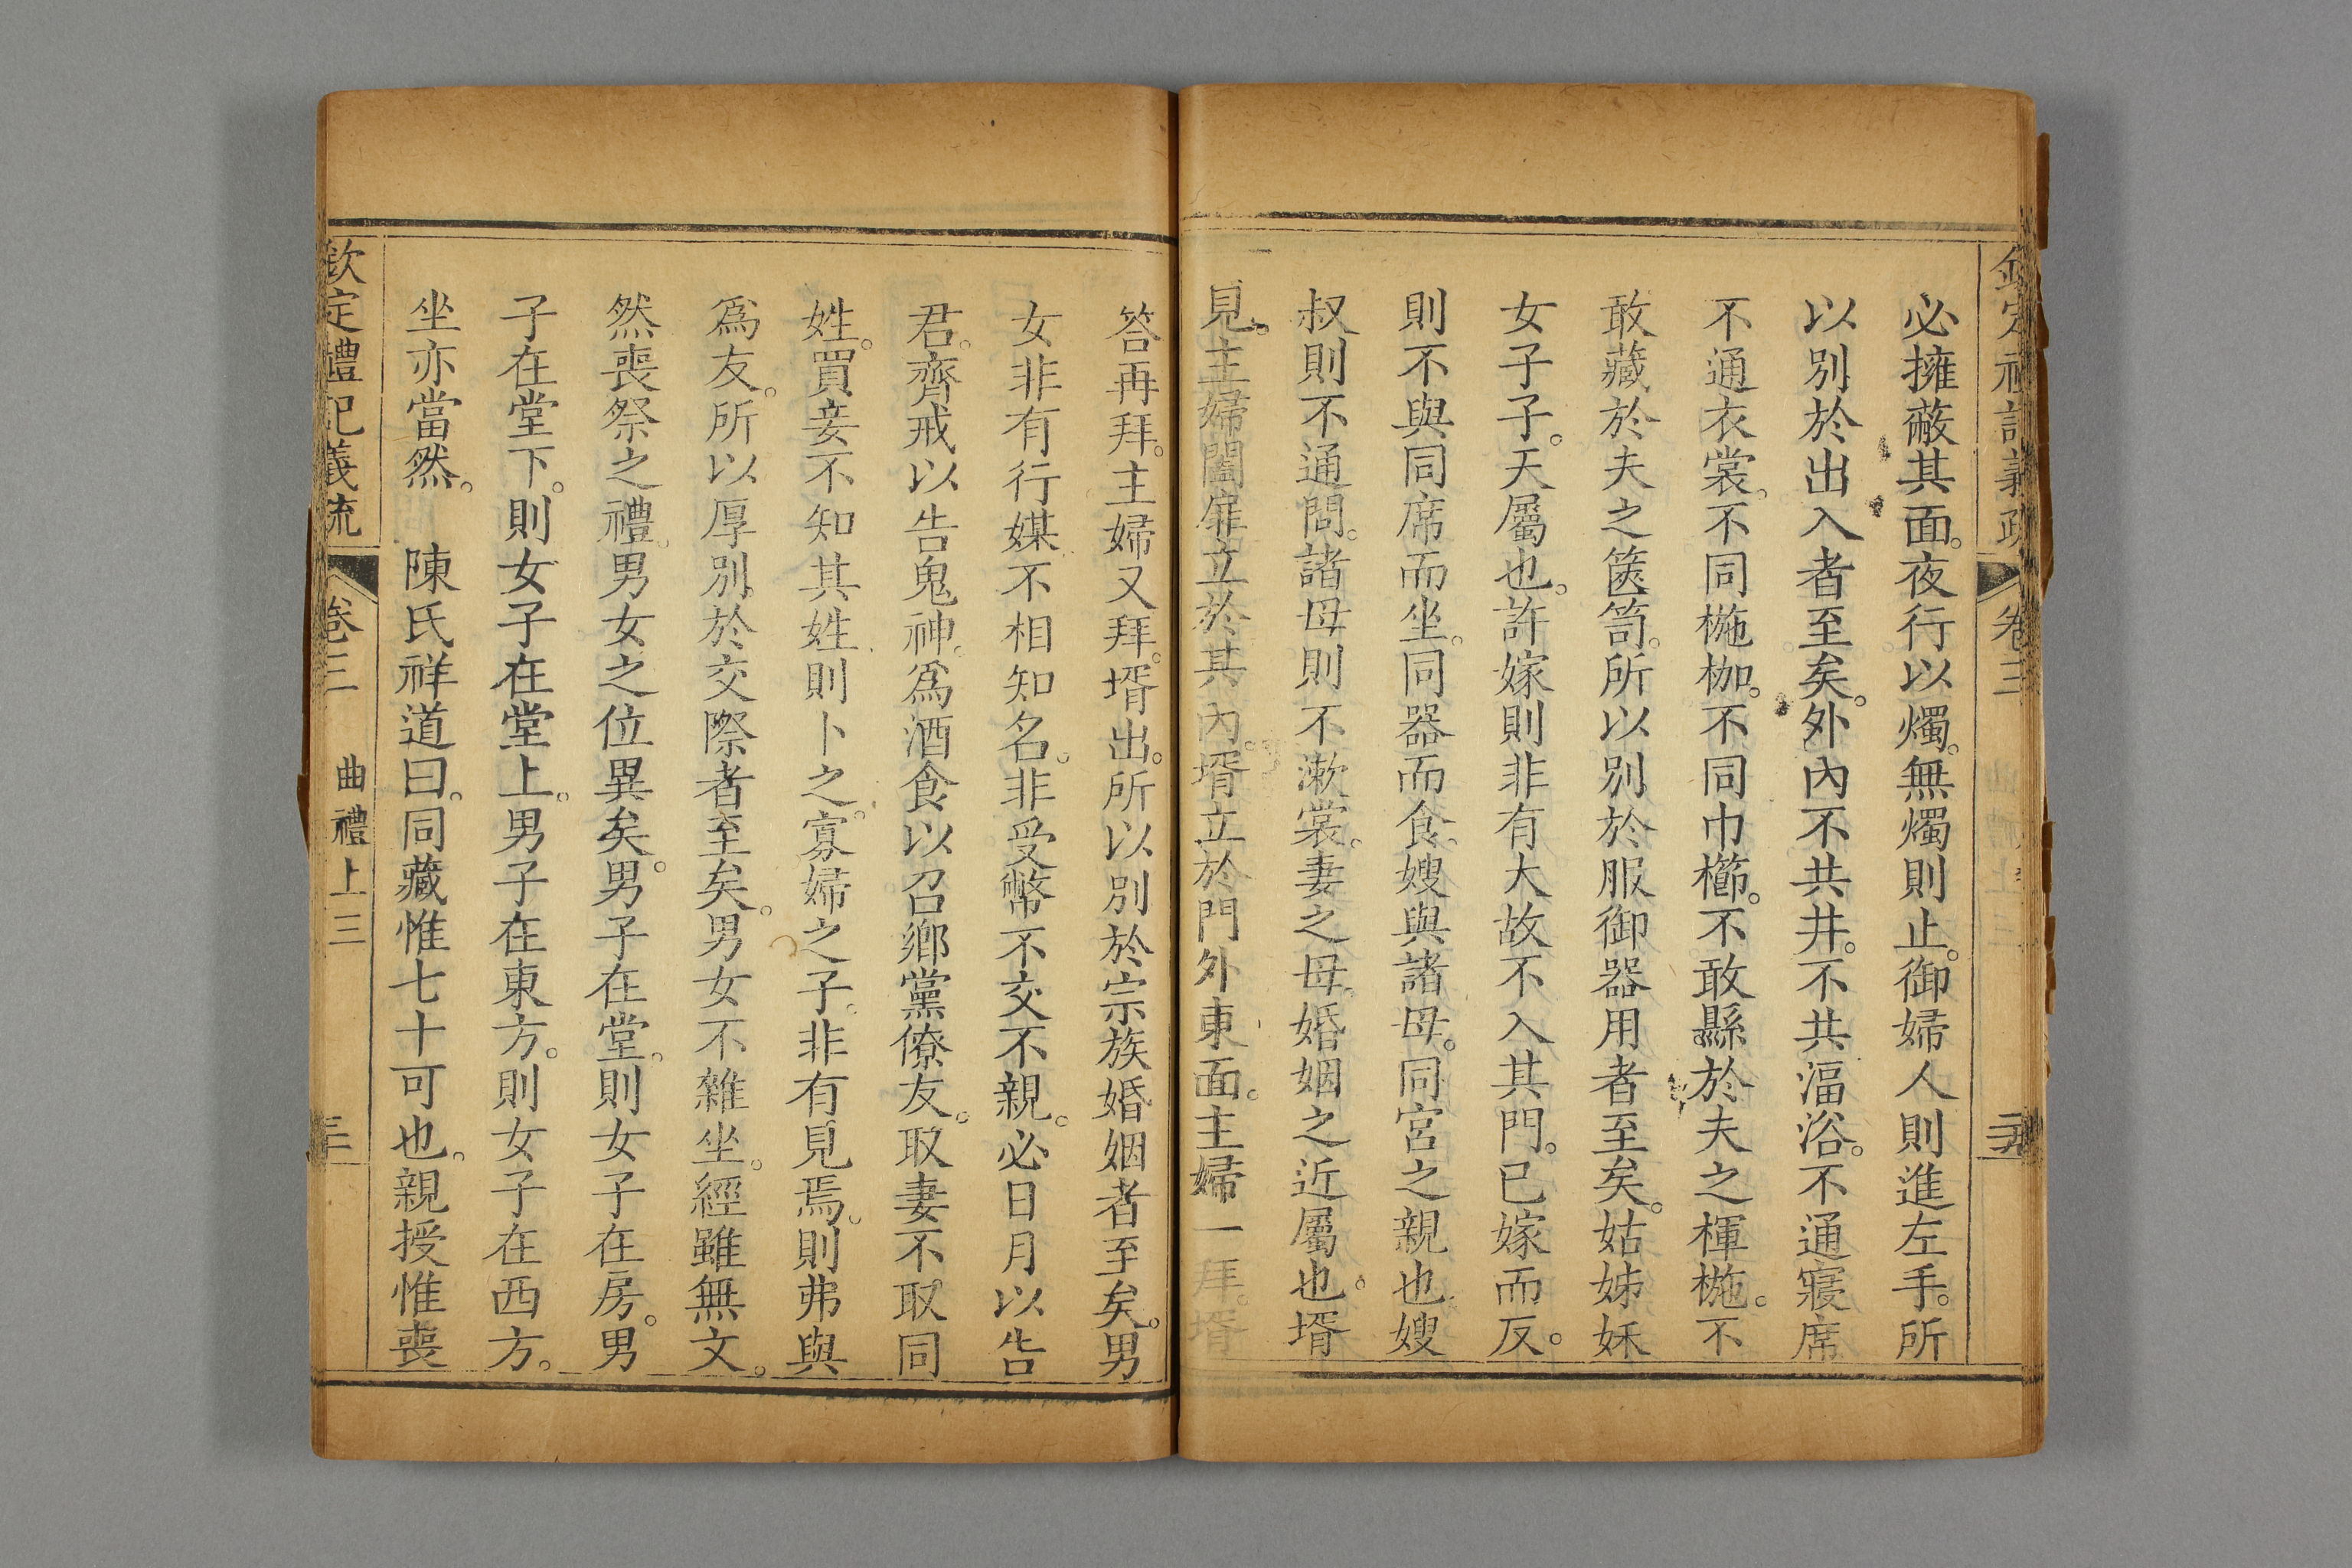 欽定禮記義疏 卷三
必擁蔽其面。夜行以燭。無燭則止。御婦人則進左手。所
以別於出入者至矣。外內不共井。不共湢浴。不通寢席
不通衣裳。不同椸枷。不同巾櫛。不敢縣於夫之楎椸。不
敢藏於夫之篋笥。所以別於服御器用者至矣。姑姊妹
女子子。天屬也。許嫁則非有大故不入其門。已嫁而反。
則不與同席而坐。同器而食。嫂與諸母。同宮之親也嫂
叔則不通問。諸母則不漱裳。妻之母。婚姻之近屬也。壻
見。主婦闔扉立於其內。壻立於門外東面。主婦一拜。壻
答再拜。主婦又拜。壻出。所以別於宗族婚姻者至矣。男
女非有行媒不相知名。非受幣不交不親。必日月以告
君。齊戒以告鬼神。爲酒食以召鄉黨僚友。取妻不取同
姓。買妾不知其姓則卜之。寡婦之子。非有見焉。則弗與
爲友。所以厚別於交際者至矣。男女不雜坐。經雖無文。
然喪祭之禮。男女之位異矣。男子在堂。則女子在房。男
子在堂下。則女子在堂上。男子在東方。則女子在西方。
坐亦當然。 陳氏祥道曰。同藏惟七十可也。親授惟喪
欽定禮記義疏 卷三 曲禮上三